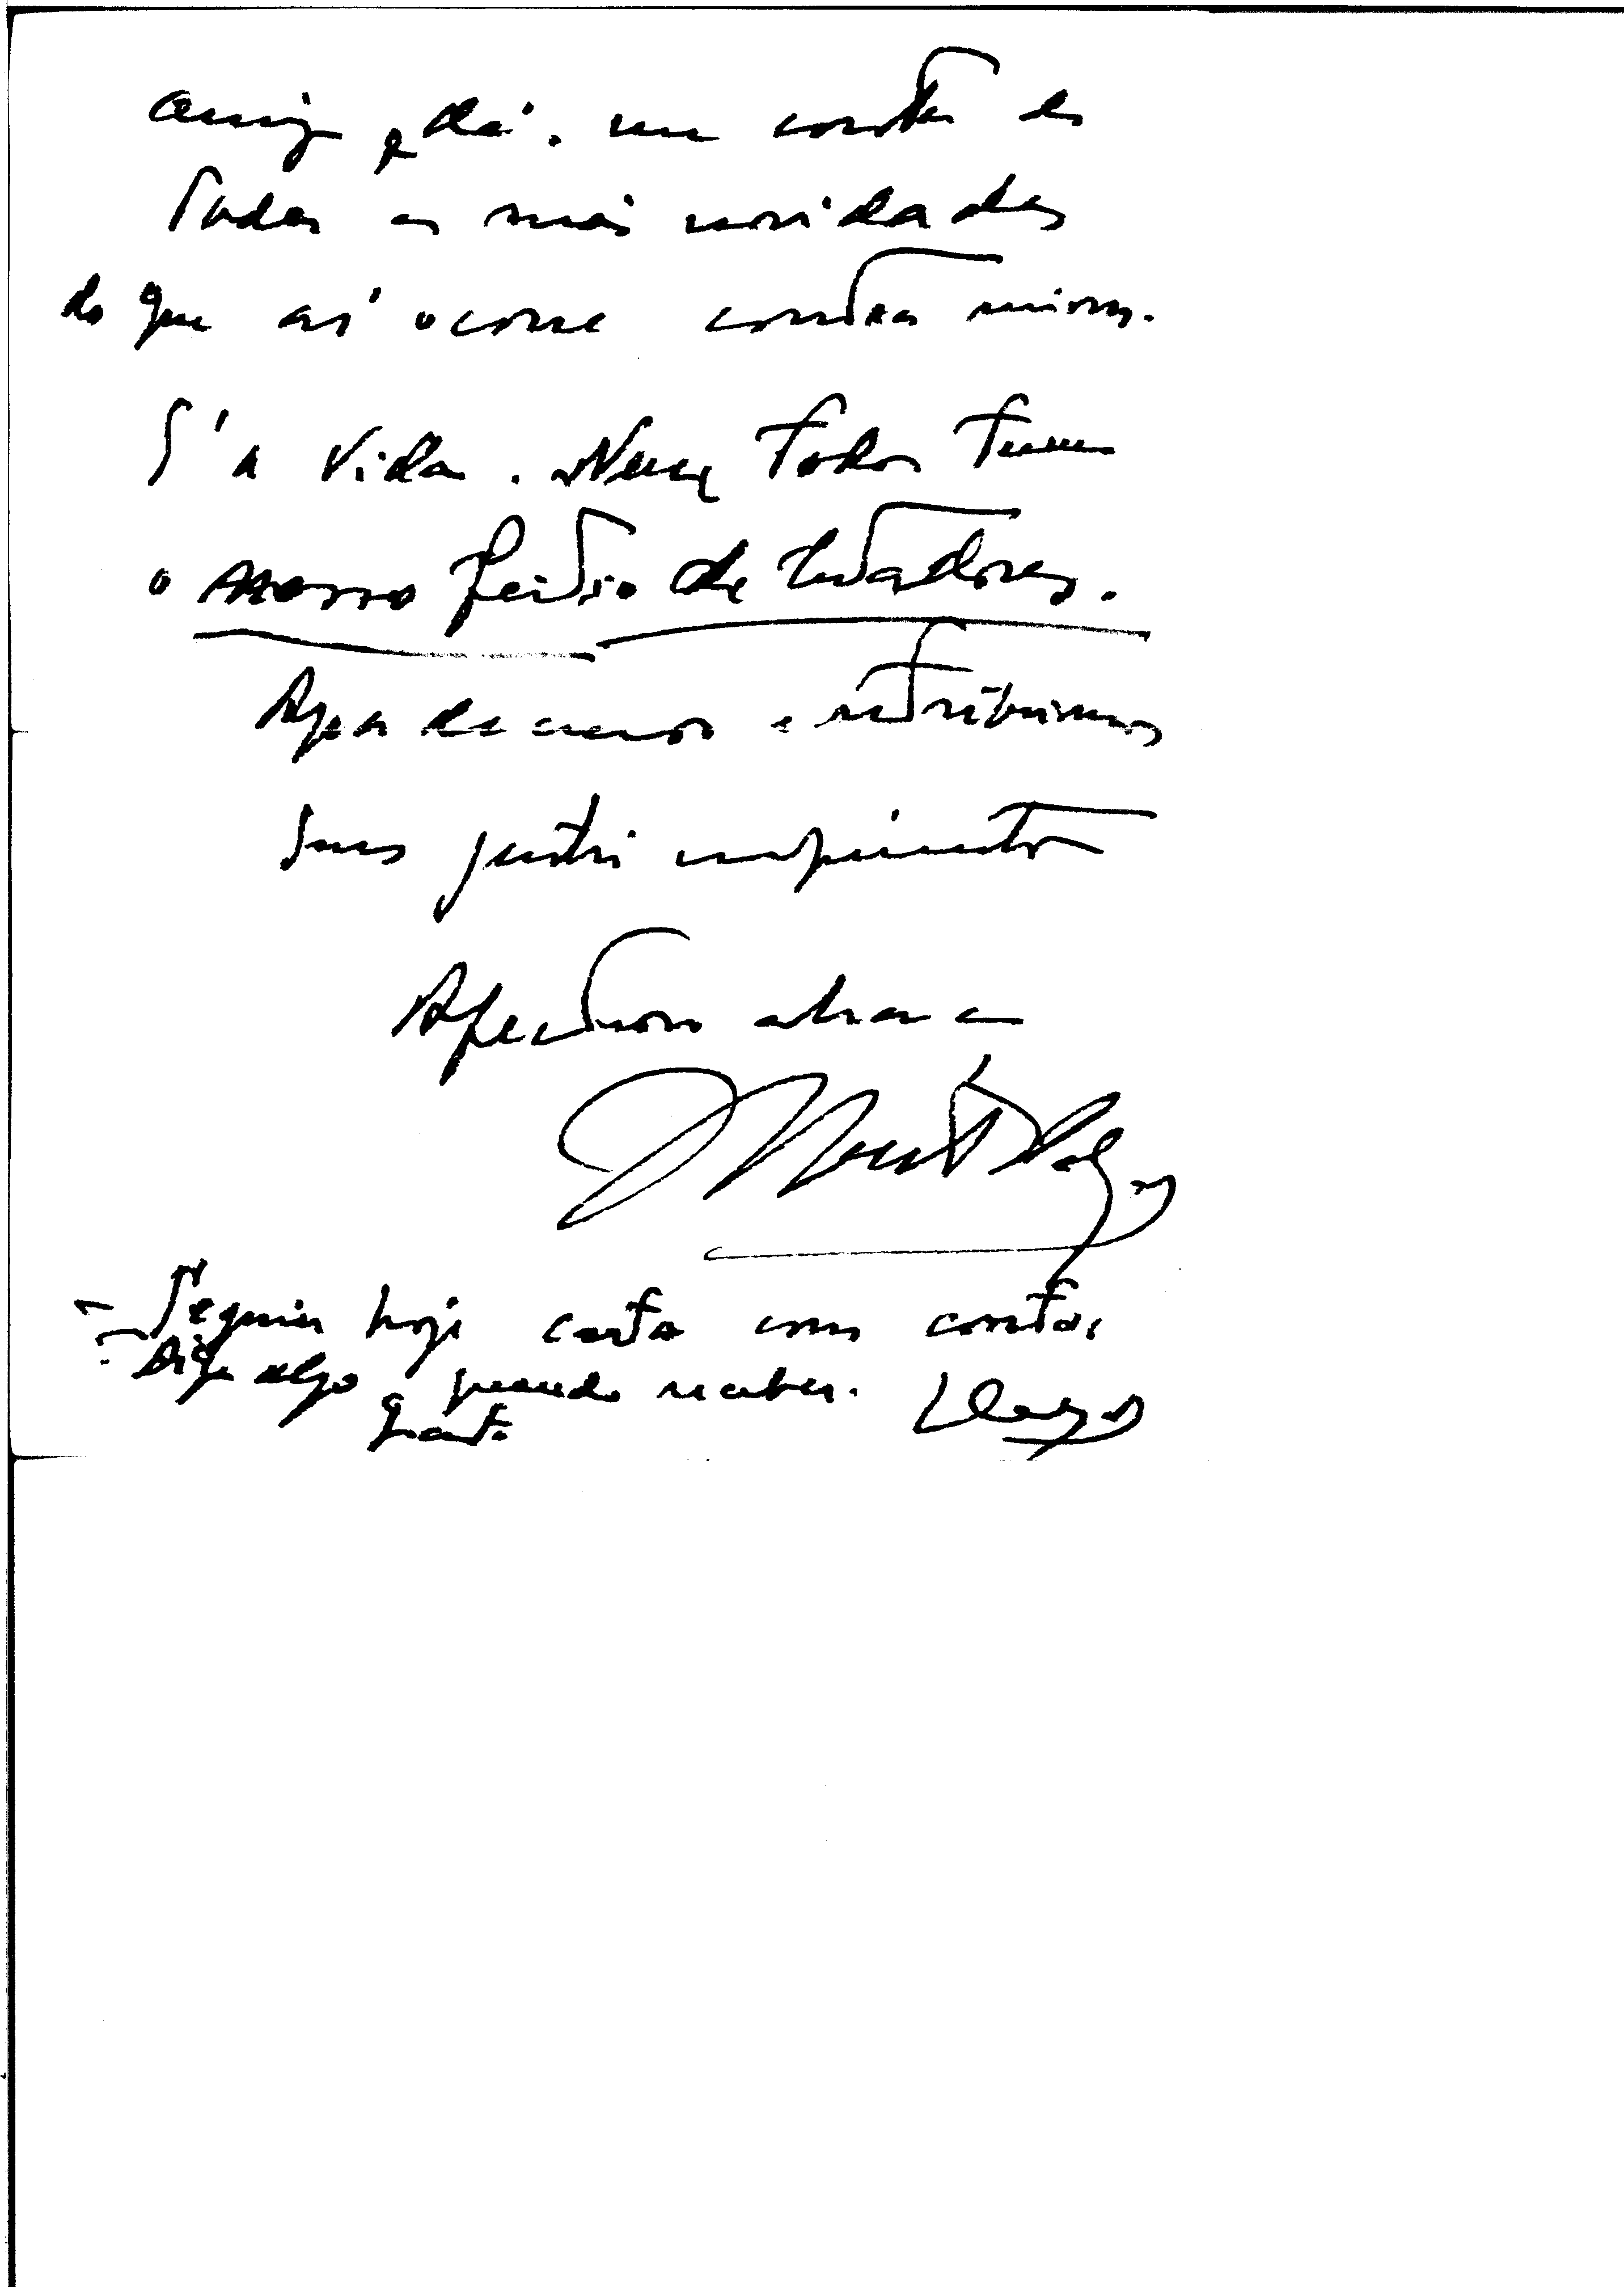 amigo, dá-me conta de
todas as más novidades
do que aí ocorre contra mim.
É a vida. Nem todos temos
o nosso feitio de lutadores.
Agradecemos e retribuimos
seus cumprimentos
Afectuoso abraço
- Seguiu hoje carta com contas
- Diga algo quando receber.